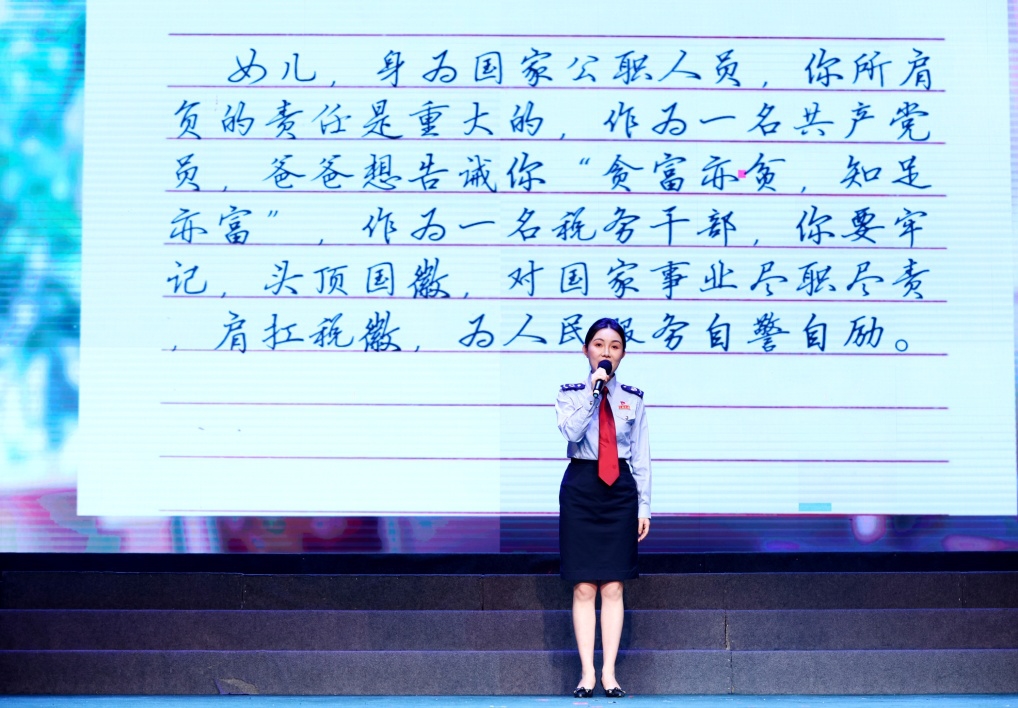 女儿，身为国家公职人员，你所肩
负的责任是重大的，作为一名共产党
员，爸爸想告诫你“贪富亦贫，知足
亦富”，作为一名税务干部，你要牢
记，头顶国徽，对国家事业尽职尽责
，肩扛税徽，为人民服务自警自励。